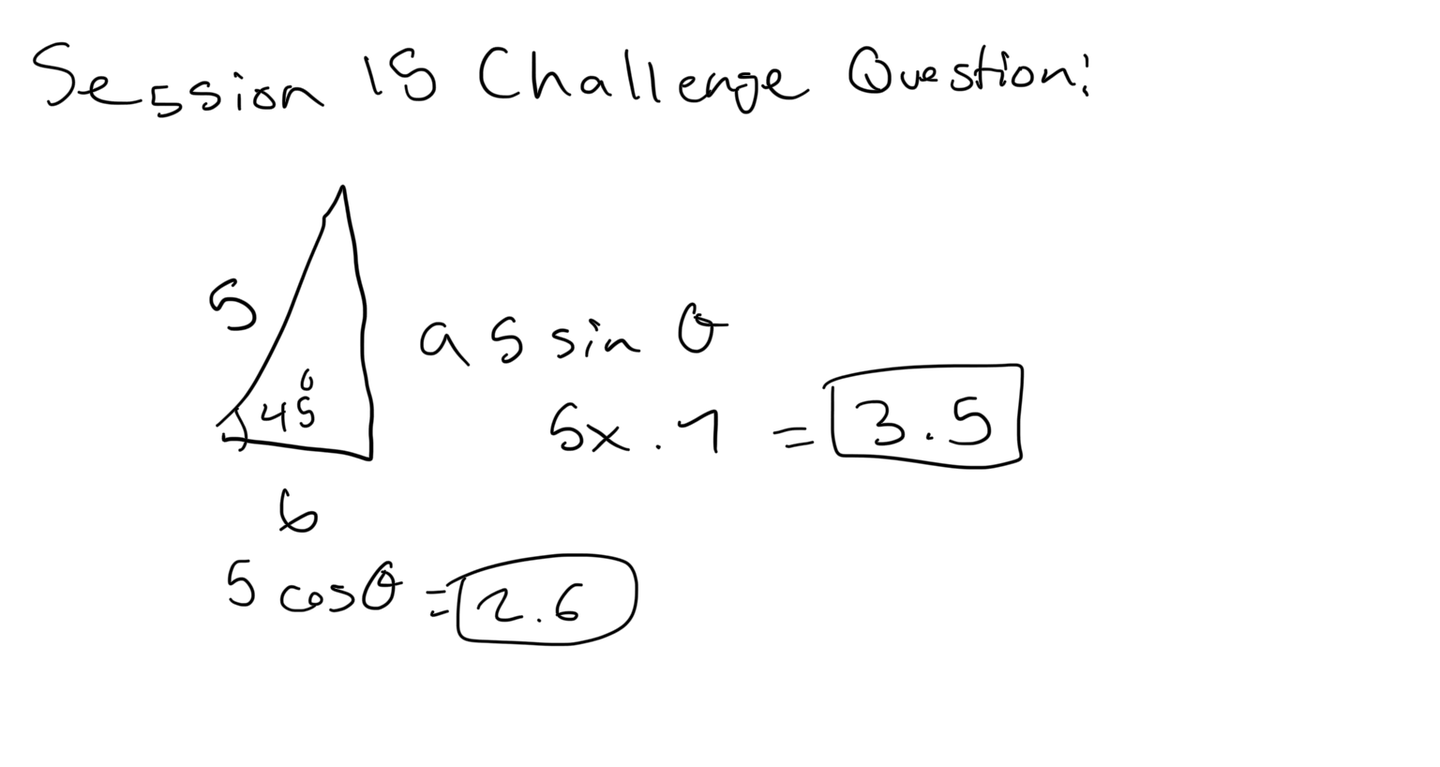 Session 15 Challenge Question:
5
a 5 sin θ
45°
5x .7 = 3.5
b
5 cosθ = 2.6